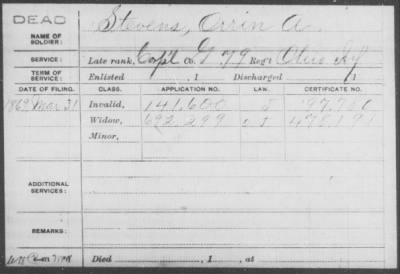 DEAD
NAME OF SOLDIER: Stevens, Orrin A.
SERVICE: Late rank, Capt Co. G 79 Reg't Ohio Inf
TERM OF SERVICE: Enlisted , 1 Discharged , 1
DATE OF FILING. CLASS. APPLICATION NO. LAW. CERTIFICATE NO.
1869 Mar 31 Invalid, 141,600
Widow, 692,299
Minor,
ADDITIONAL SERVICES:
REMARKS:
Died , 1 , at